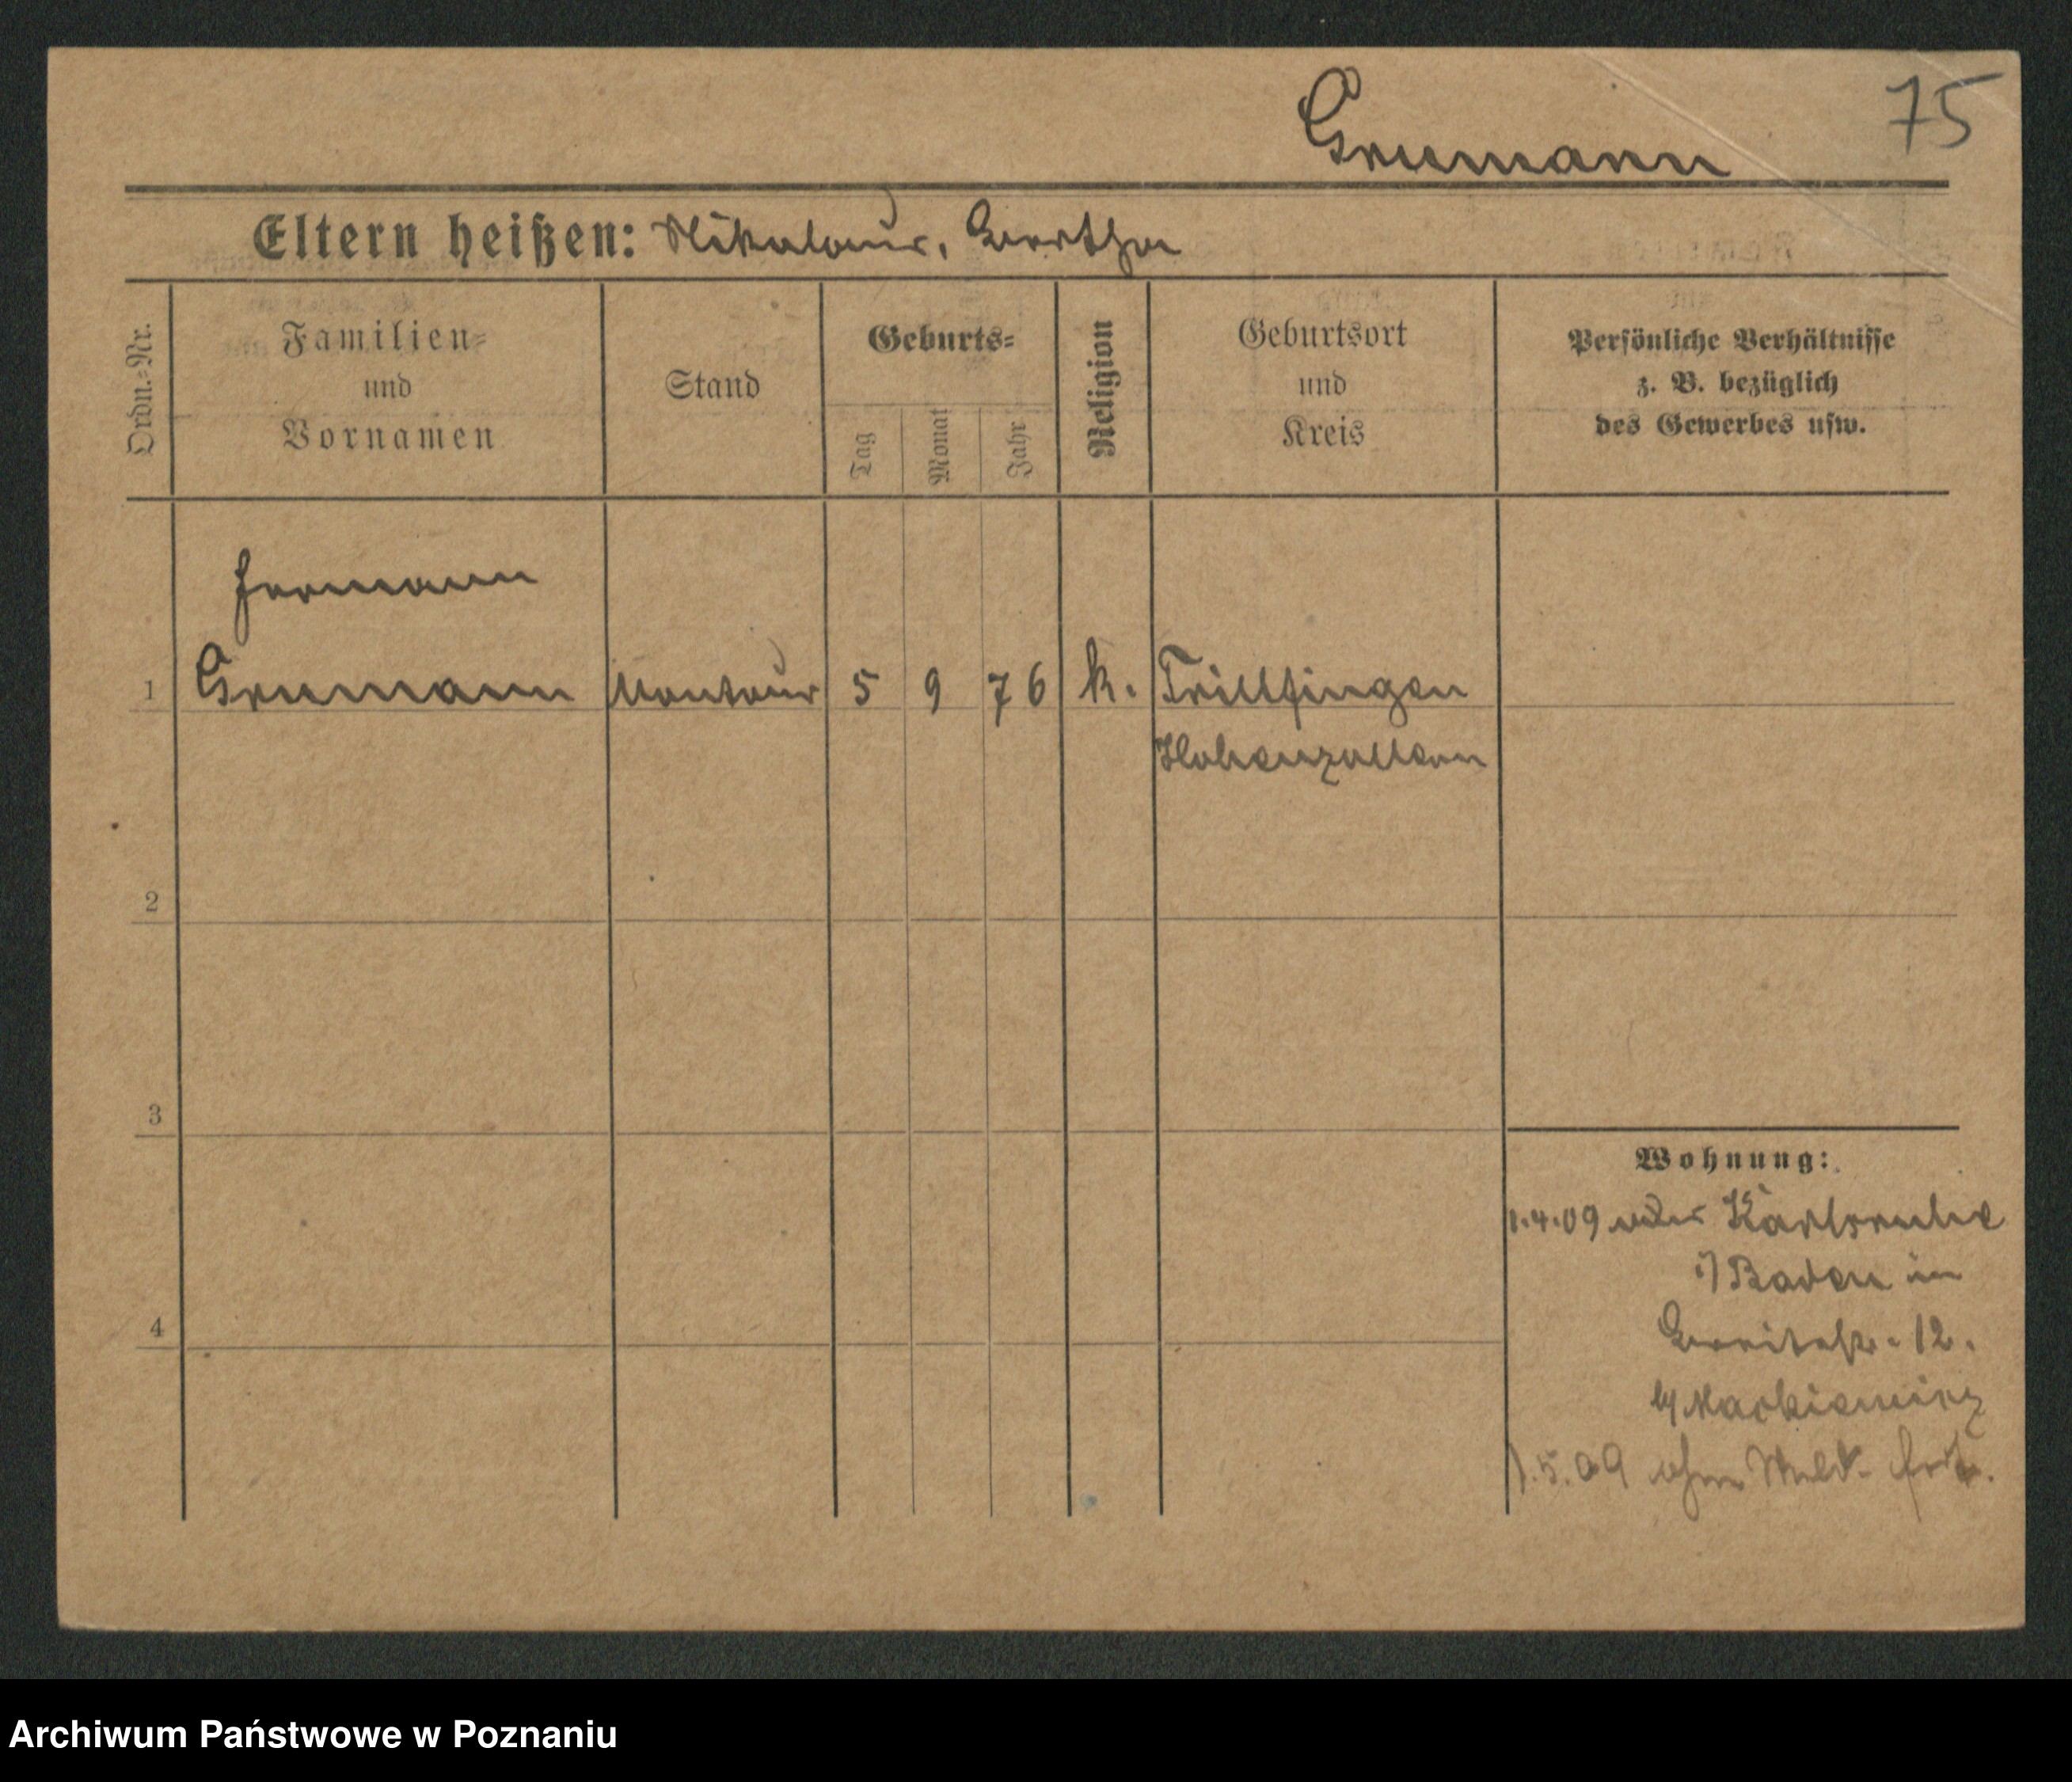 75
Grumann
Eltern heißen: Nikolaus, Bertha
Ordn.-Nr.
Familien-
und
Vornamen
Stand
Geburts-
Tag
Monat
Jahr
Religion
Geburtsort
und
Kreis
Persönliche Verhältnisse
z. B. bezüglich
des Gewerbes usw.
Hermann
1 Grumann Monteur 5 9 76 k. Trillfingen
Hohenzollern
2
3
Wohnung:
1.4.09 Karlsruhe
i) Baden in
4
Breitestr. 12.
b/
1.5.09 ohne Meld. fort.
Archiwum Państwowe w Poznaniu